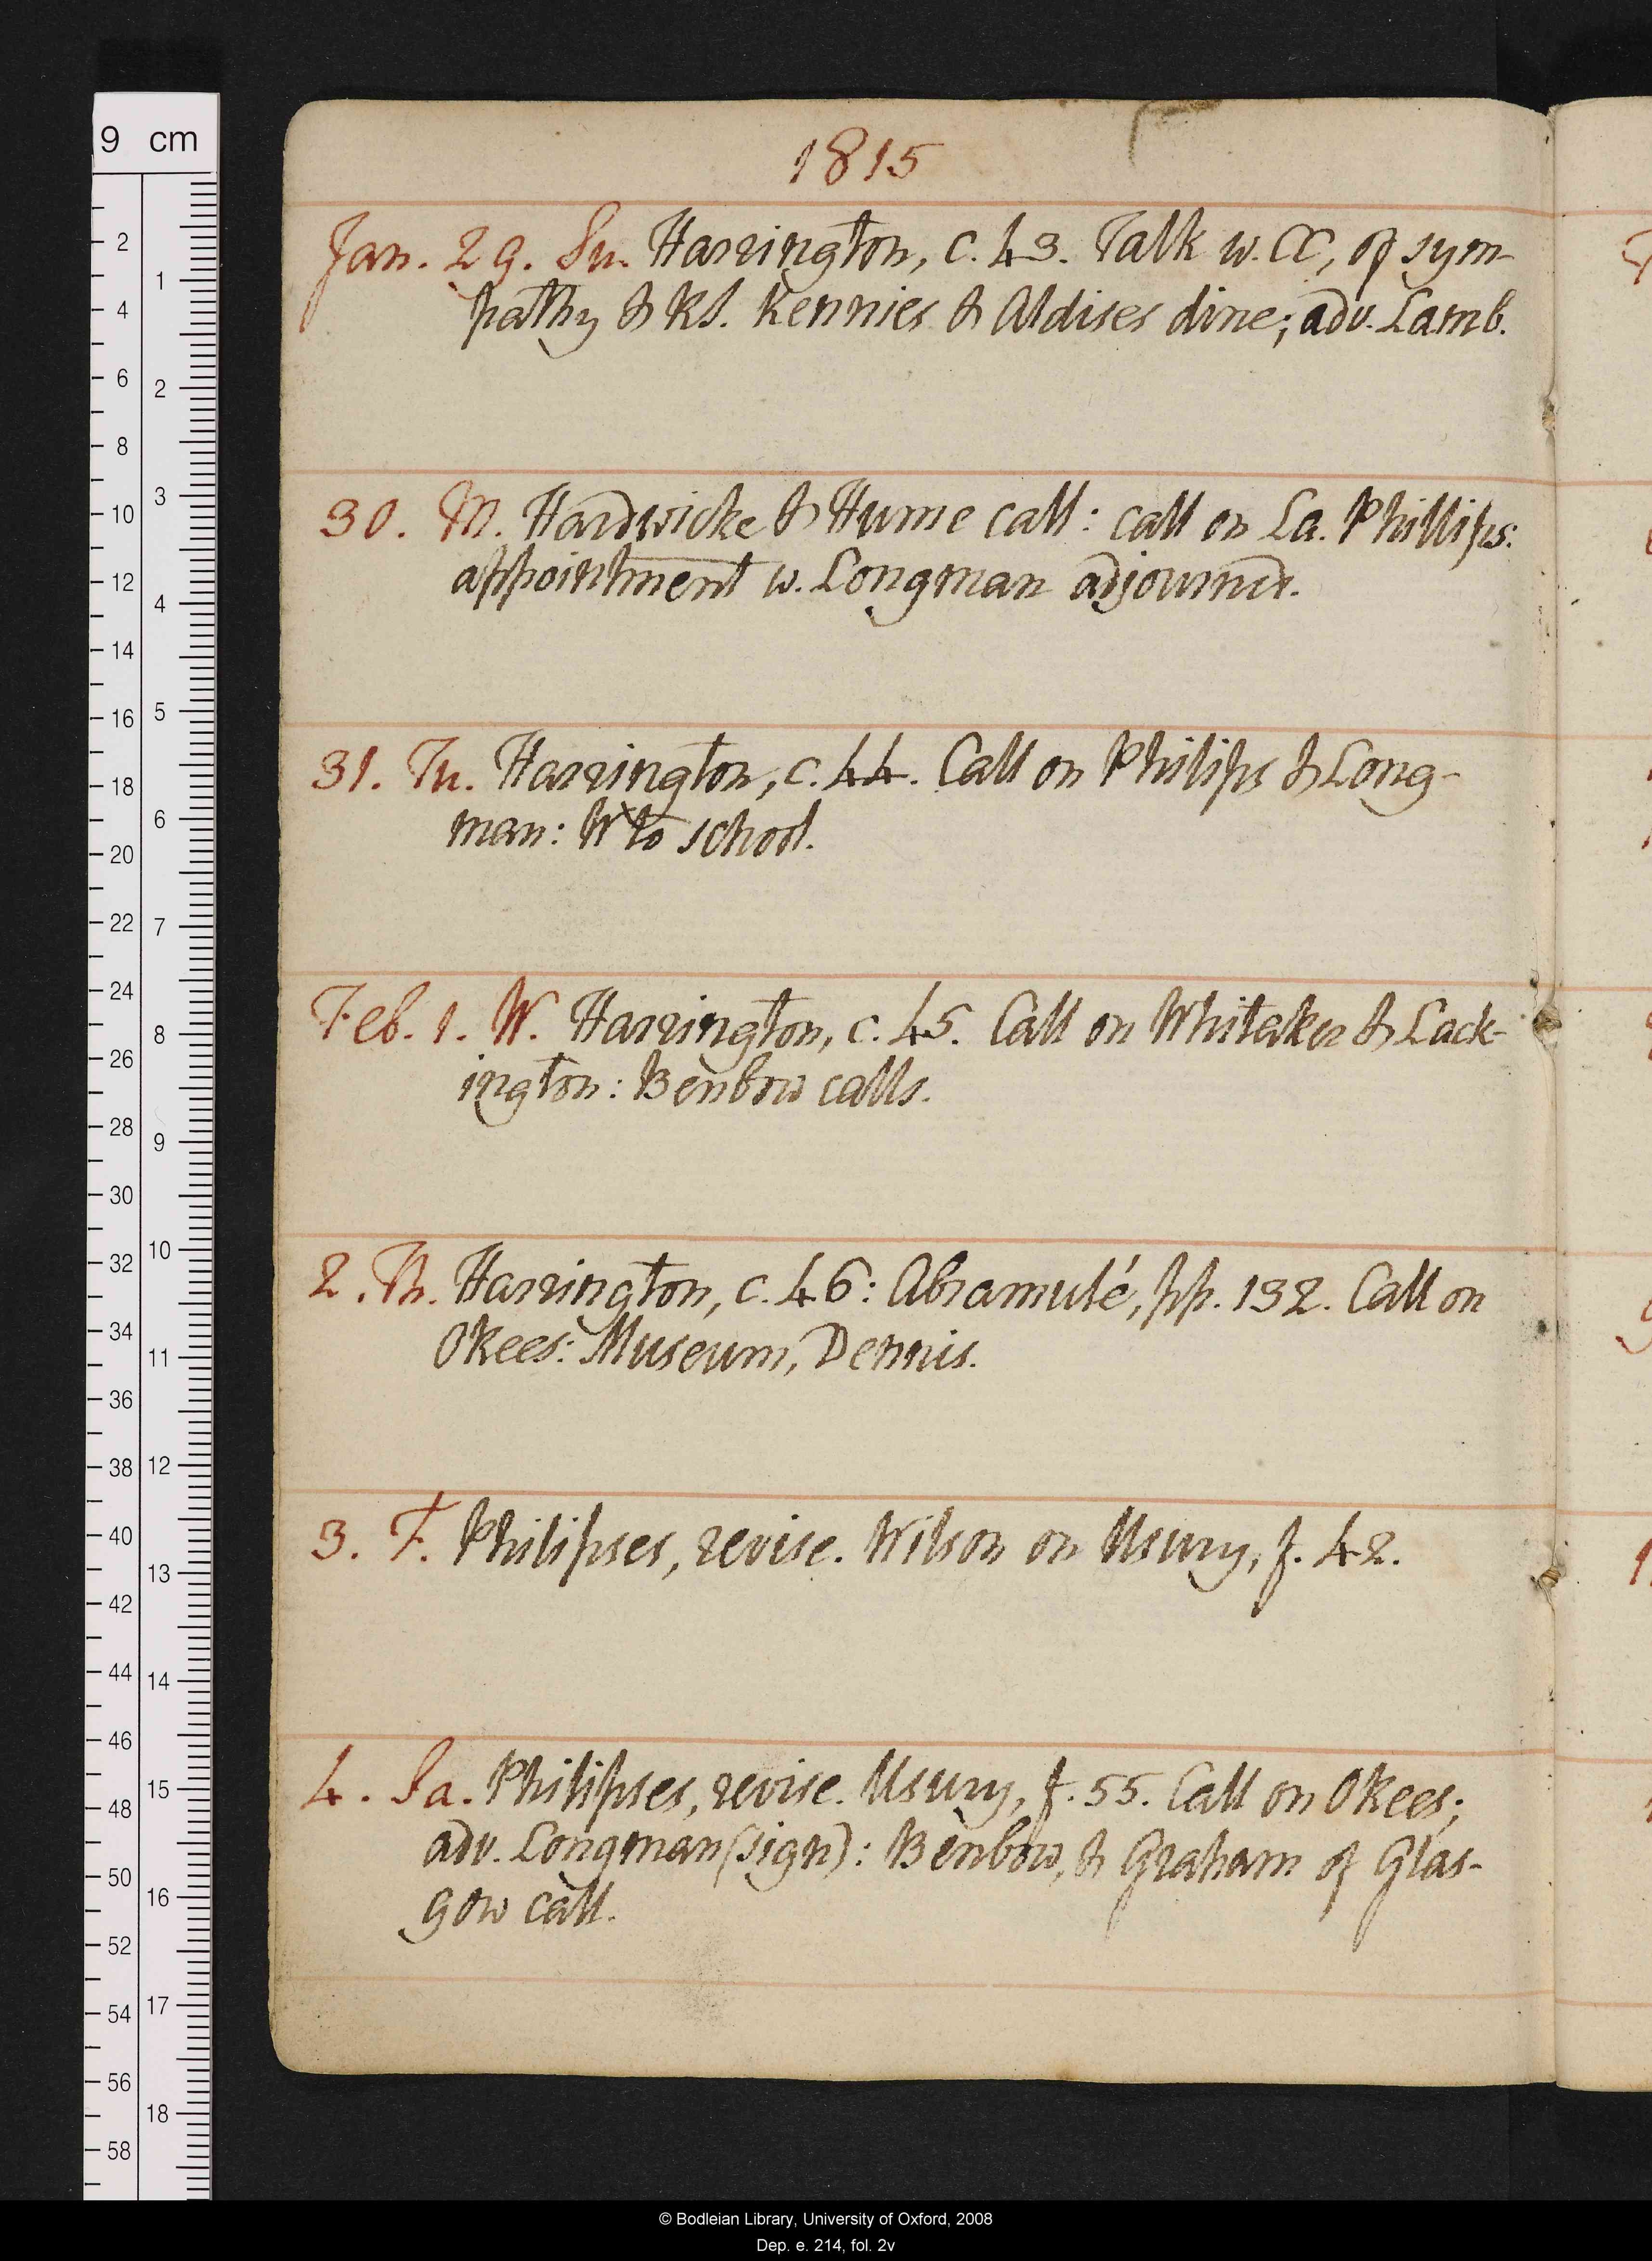 1815
Jan. 29. Su. Harrington, c. 43. Talk w. CC, of sym-
pathy & RS. Kennies & Aldises dine; adv. Lamb.
30. M. Hardwicke & Hume call: call on La. Phillips:
appointment w. Longman adjournd.
31. Tu. Harrington, c. 44. Call on Philips & Long-
man: W to school.
Feb. 1. W. Harrington, c. 45. Call on Whitaker & Lack-
ington: Benbow calls.
2. Th. Harrington, c. 46: Abramulé, pp. 132. Call on
OKees: Museum, Dennis.
3. F. Philipses, revise. Wilson on Usury, f. 42.
4. Sa. Philipses, revise. Usury, f. 55. Call on OKees;
adv. Longman (sign): Benbow, & Graham of Glas-
gow call.
9 cm
2
4
6
8
10
12
14
16
18
20
22
24
26
28
30
32
34
36
38
40
42
44
46
48
50
52
54
56
58
1
2
3
4
5
6
7
8
9
10
11
12
13
14
15
16
17
18
© Bodleian Library, University of Oxford, 2008
Dep. e. 214, fol. 2v